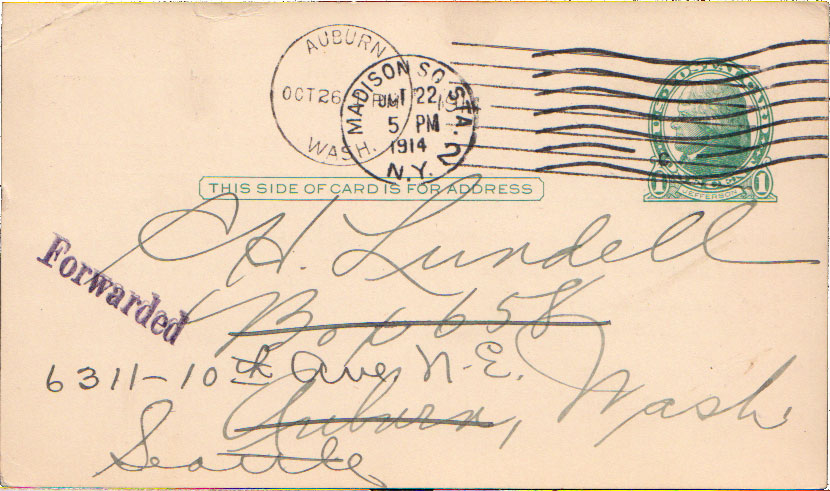 AUBURN
OCT 26
WASH.
MADISON SQ. STA. 2
OCT 22
5 PM
1914
N.Y.
1 JEFFERSON 1
THIS SIDE OF CARD IS FOR ADDRESS
Forwarded
C H. Lundell
Box 658
6311-10th Ave N.E.
Auburn, Wash.
Seattle